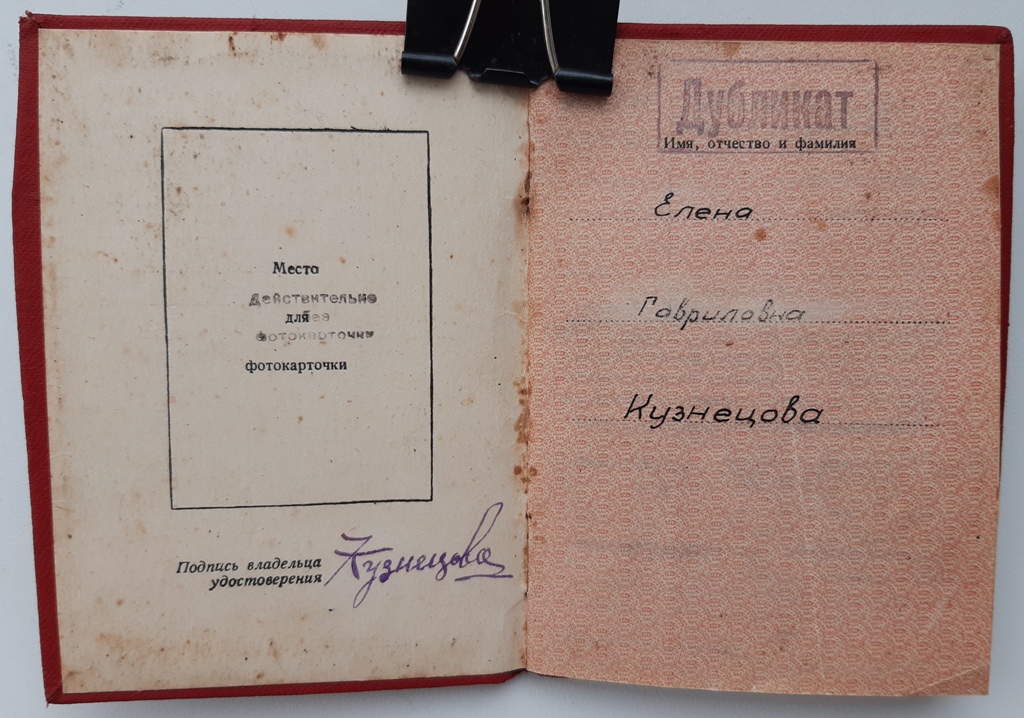 Место
Действительно
для без
фотокарточки
фотокарточки
Подпись владельца
удостоверения
Кузнецова
Дубликат
Имя, отчество и фамилия
Елена
Гавриловна
Кузнецова